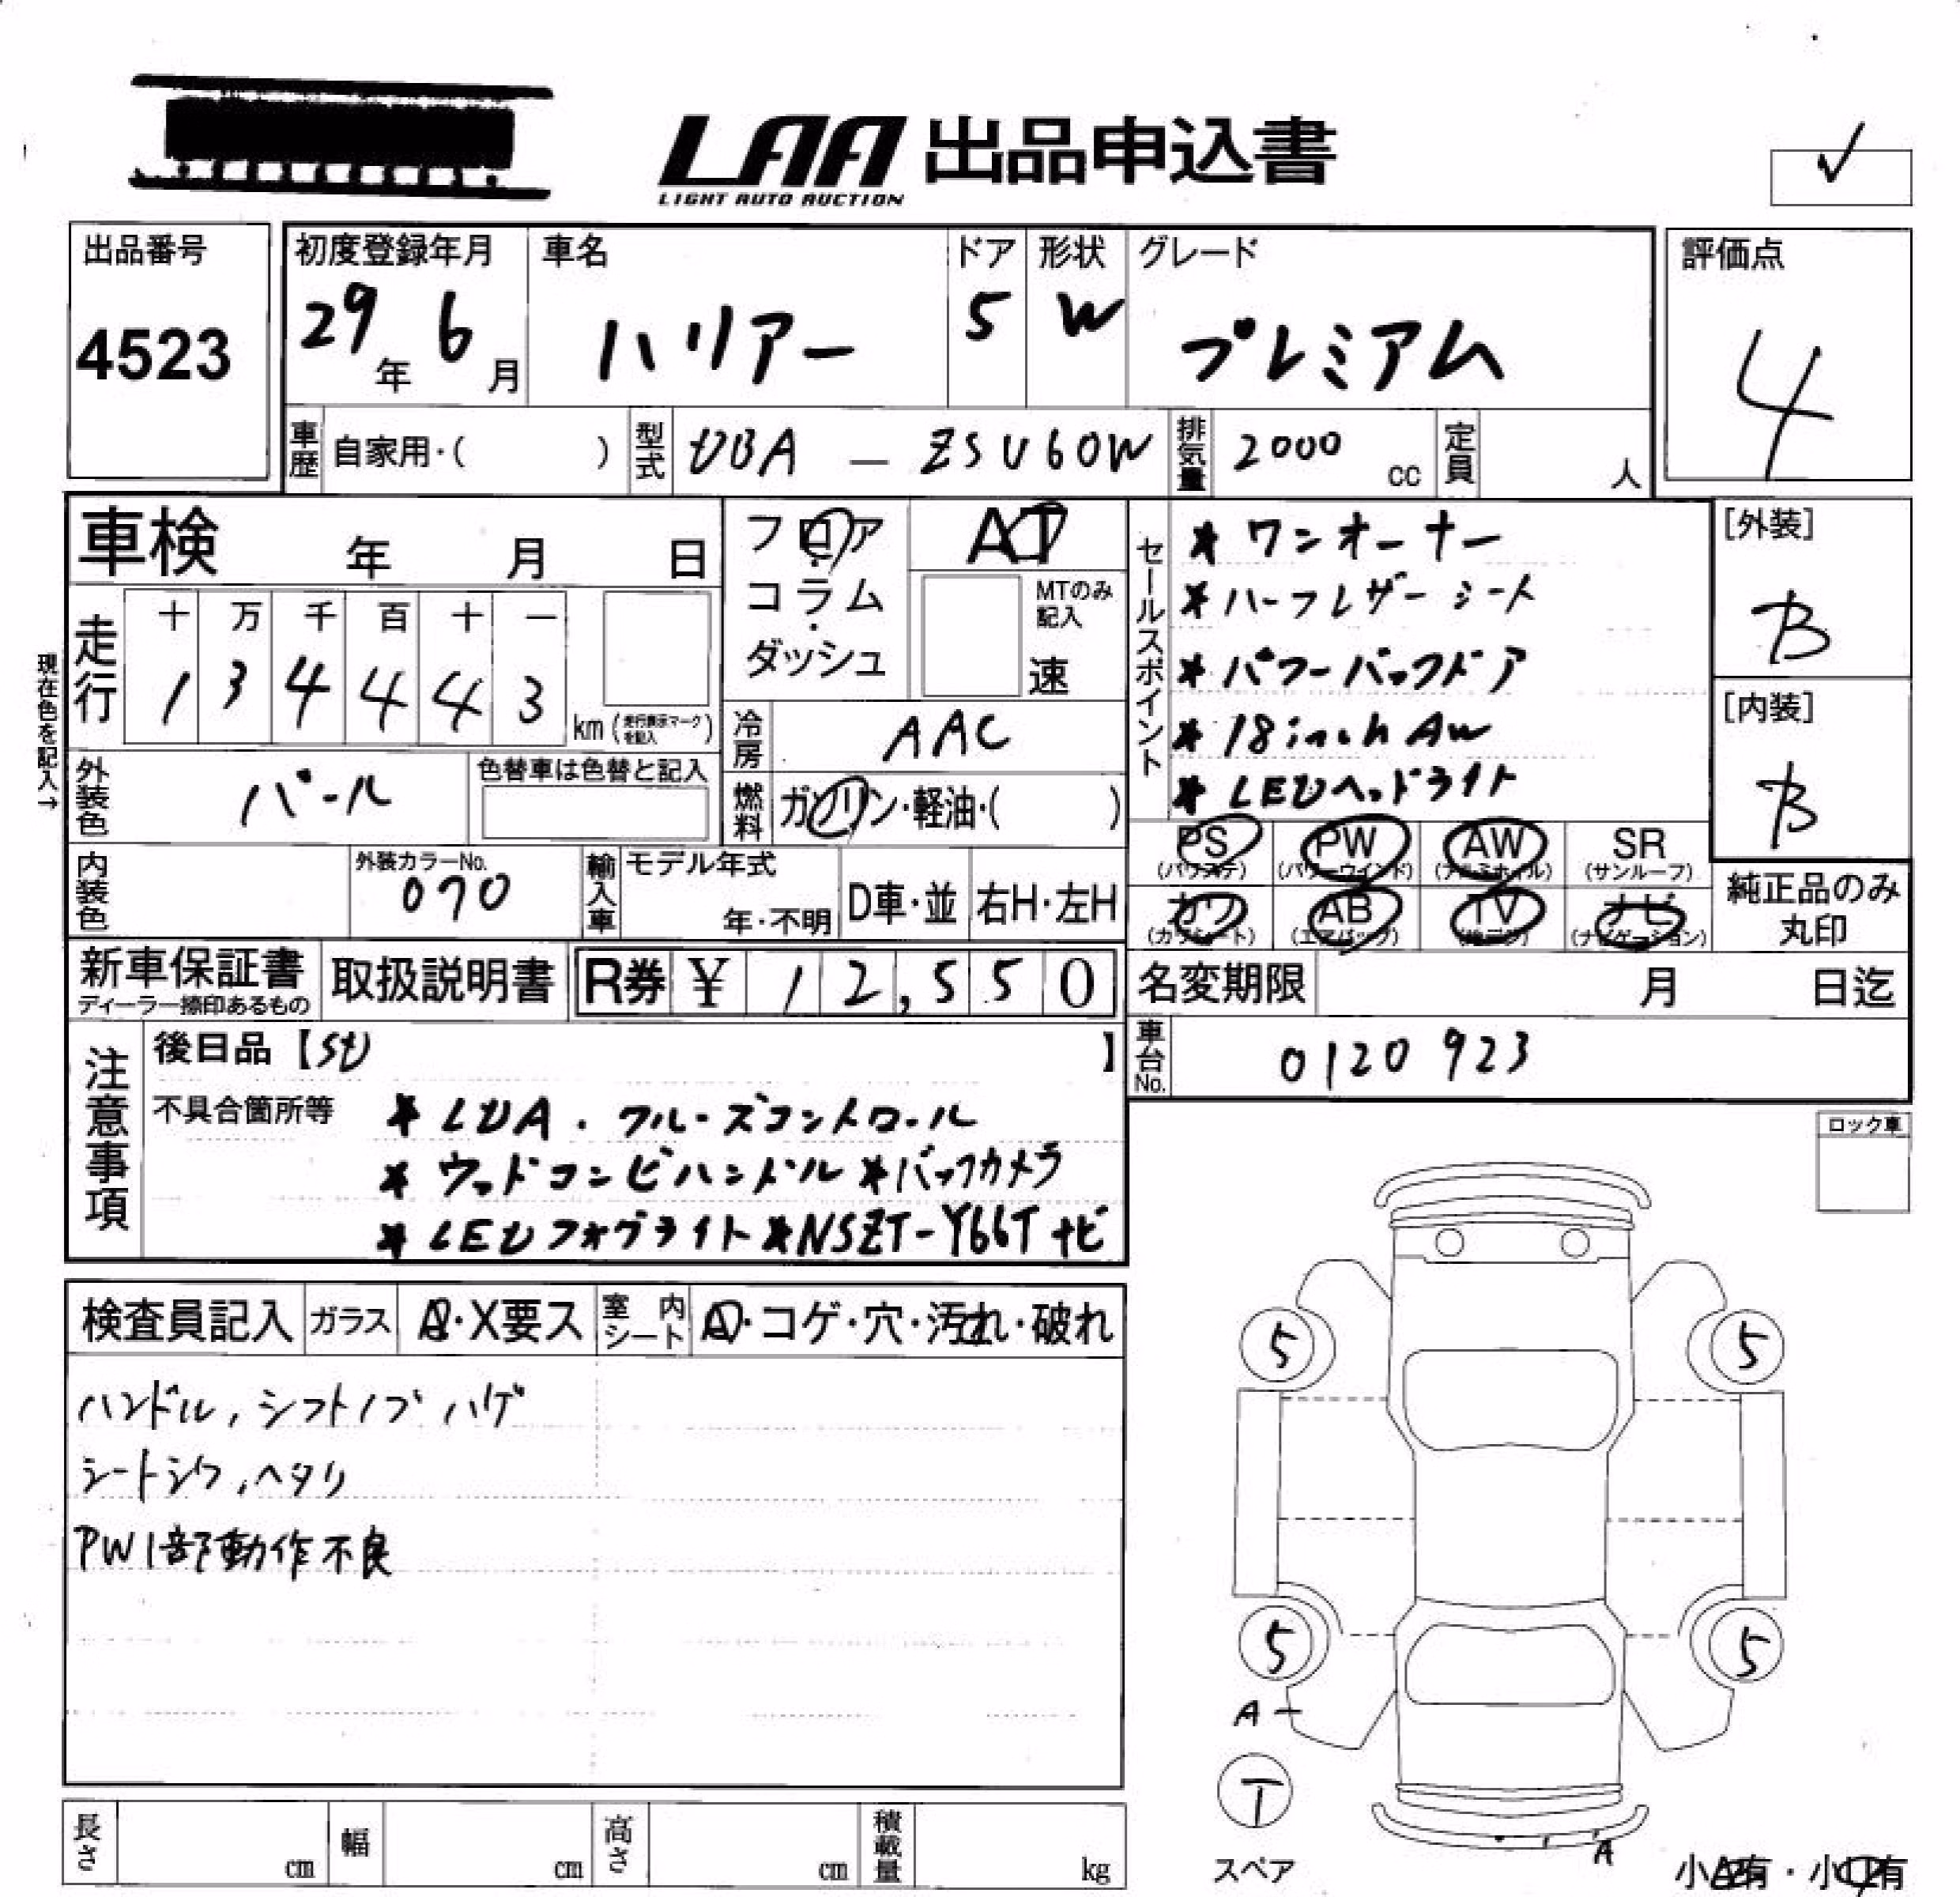 LAA 出品申込書
LIGHT AUTO AUCTION
✓
出品番号
4523
初度登録年月
29年 6月
車名
ハリアー
ドア
5
形状
W
グレード
プレミアム
評価点
4
車歴 自家用・( )
型式 DBA - ZSU60W
排気量 2000 cc
定員 人
車検 年 月 日
フロア・コラム・ダッシュ
AT
MTのみ記入
速
現在色を記入→
走行
十 万 千 百 十 一
1 3 4 4 4 3
km (走行表示マークを記入)
冷房 AAC
外装色 パール
色替車は色替と記入
燃料 ガソリン・軽油・( )
内装色
外装カラーNo.
070
輸入車
モデル年式
年・不明
D車・並
右H・左H
セールスポイント
* ワンオーナー
* ハーフレザーシート
* パワーバックドア
* 18inch AW
* LEDヘッドライト
[外装]
B
[内装]
B
PS (パワステ)
PW (パワーウインド)
AW (アルミホイル)
SR (サンルーフ)
カワ (カワシート)
AB (エアバッグ)
TV (地デジ)
ナビ (ナビゲーション)
純正品のみ丸印
新車保証書
ディーラー捺印あるもの
取扱説明書
R券 ¥ 12,550
名変期限 月 日迄
注意事項
後日品【SD 】
不具合箇所等
* LDA・クルーズコントロール
* ウッドコンビハンドル *バックカメラ
* LEDフォグライト *NSZT-Y66Tナビ
車台No. 0120923
ロック車
検査員記入
ガラス A・X要ス
室内シート A・コゲ・穴・汚れ・破れ
ハンドル, シフトノブ ハゲ
シートシワ, ヘタリ
PW1部動作不良
5 5
5 5
A
T
スペア
A
小A有・小U有
長さ cm
幅 cm
高さ cm
積載量 kg